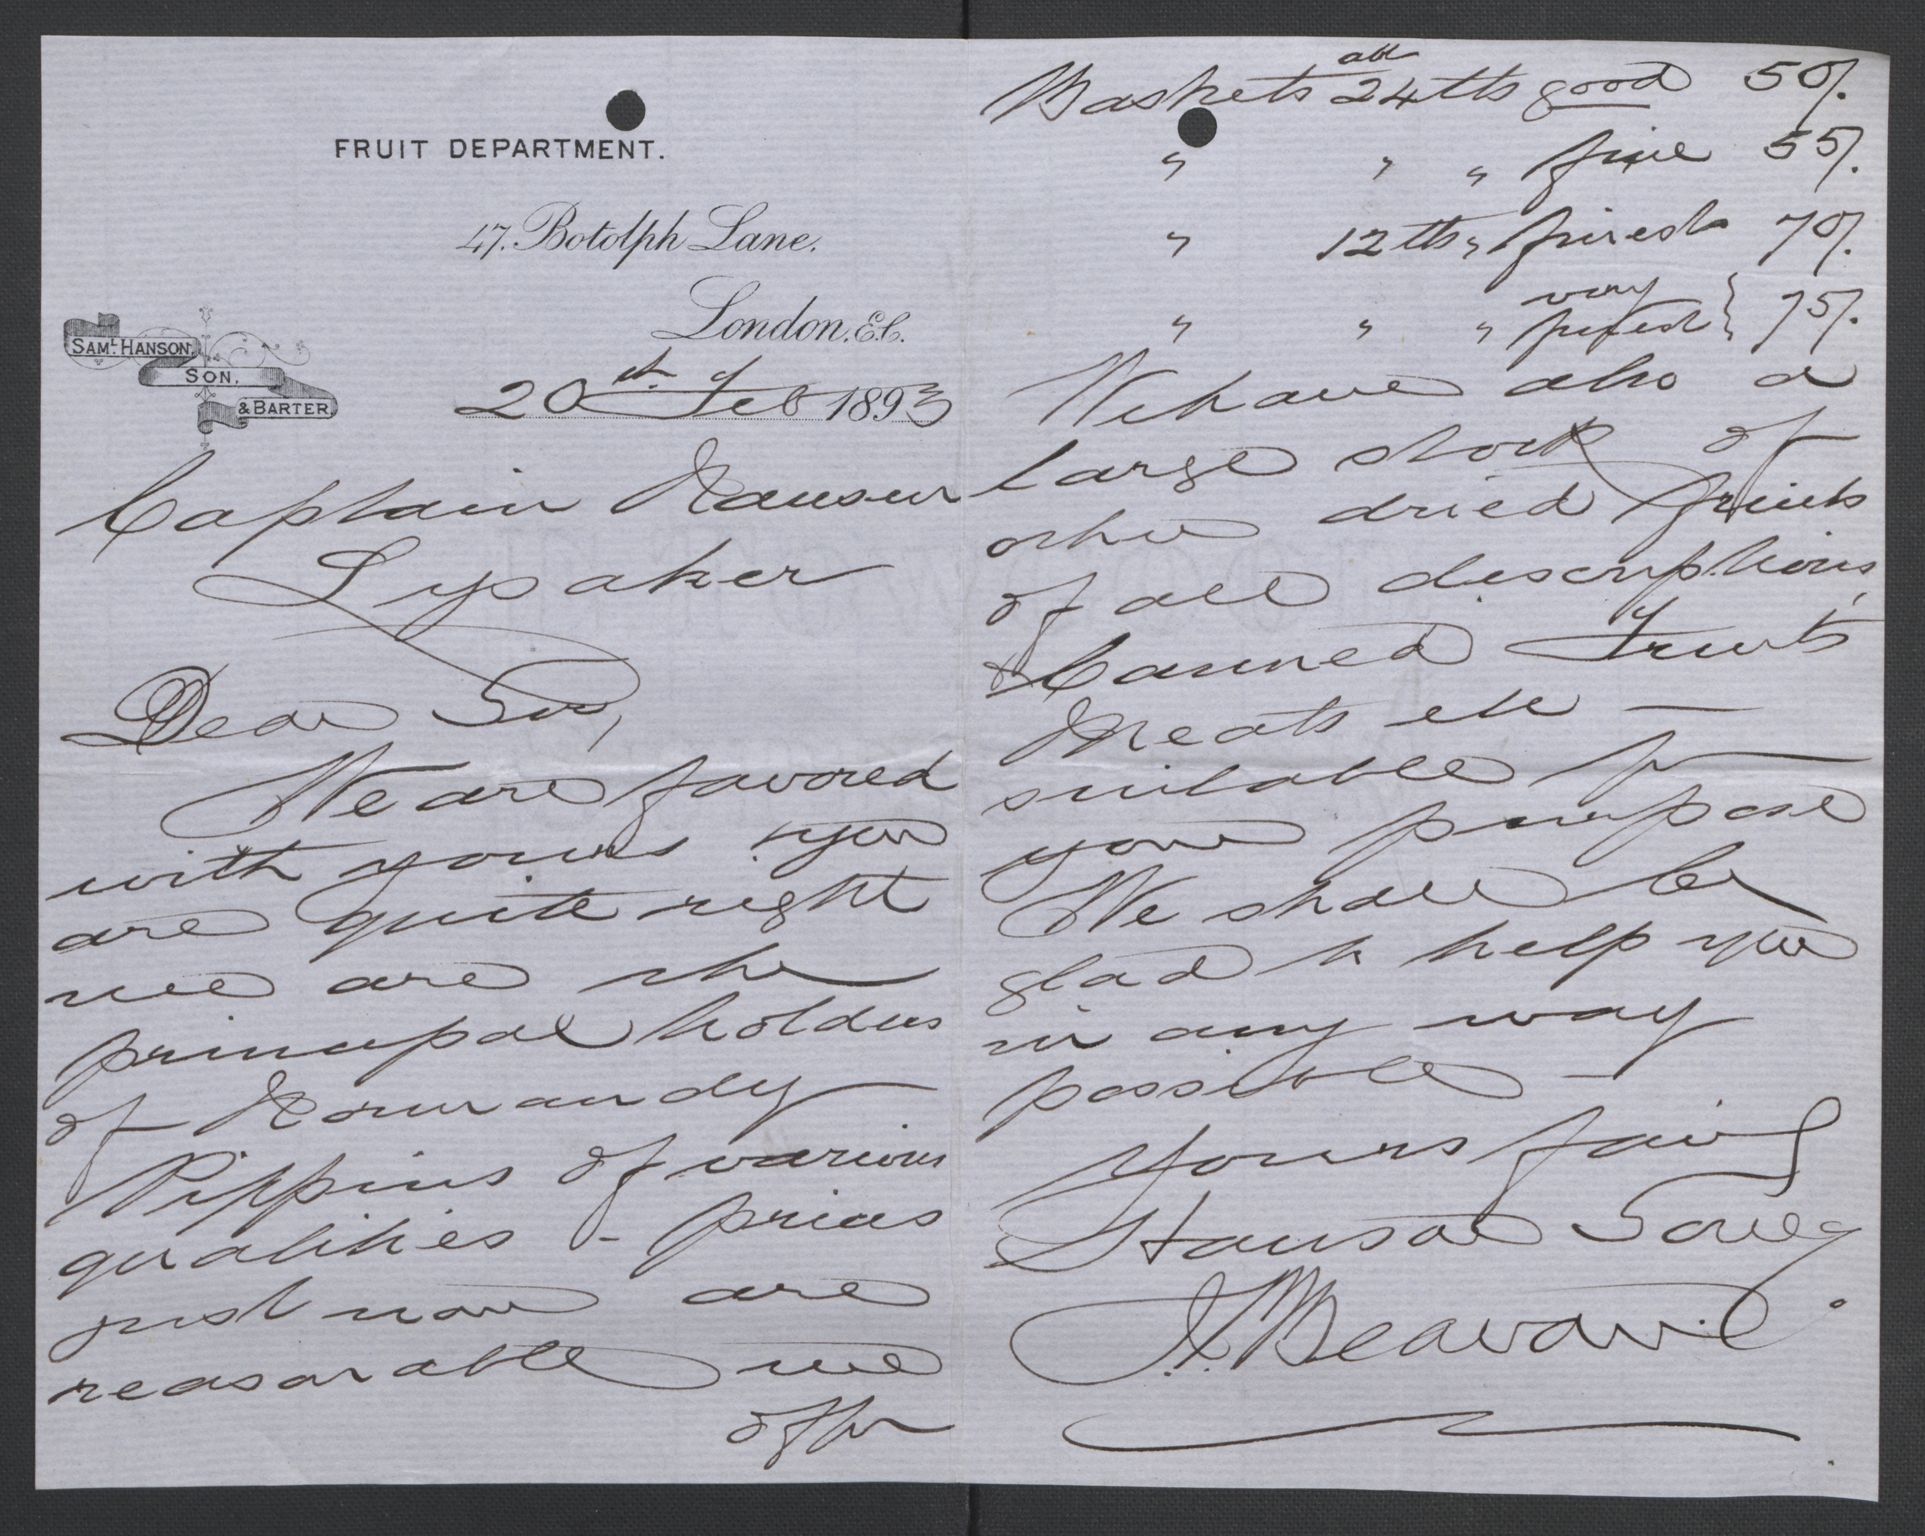 FRUIT DEPARTMENT.
47. Botolph Lane.
London. E.C.
SAML. HANSON,
SON,
& BARTER.
20th Feb 1893
Captain Nansen
Lysaker
Dear Sir,
We are favored
with yours. you
are quite right
we are the
principal holders
of Normandy
Pippins of various
qualities - prices
just now are
reasonable we
offer
Baskets abt 24 lbs good 50/.
" " " fine 55/.
" 12 lbs " finest 70/.
" " " very finest } 75/.
We have also a
large stock of
other dried fruits
of all descriptions,
& Canned Fruits
Meats etc -
suitable for
your purpose
We shall be
glad to help you
in any way
possible -
Yours
Hanson Son
J. Beavan